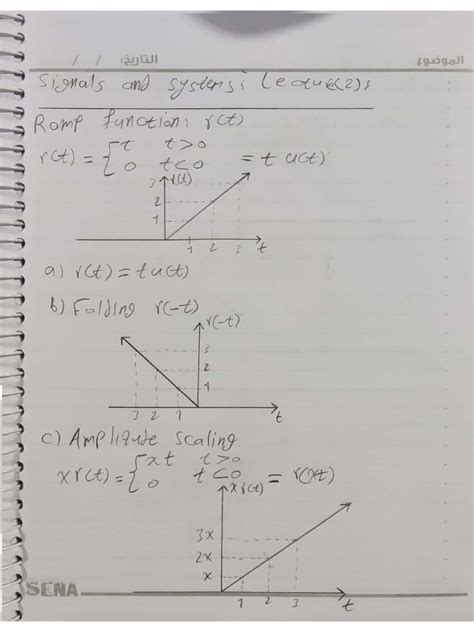 الموضوع التاريخ: / /
Signals and systems: Lecture(2):
Ramp function: r(t)
r(t) = { t t>0
0 t<0 = t u(t)
3 r(t)
2
1
1 2 3 t
a) r(t) = t u(t)
b) Folding r(-t)
r(-t)
3
2
1
3 2 1 t
c) Amplitude scaling
x r(t) = { xt t>0
0 t<0 = r(xt)
x r(t)
3x
2x
x
1 2 3 t
SENA